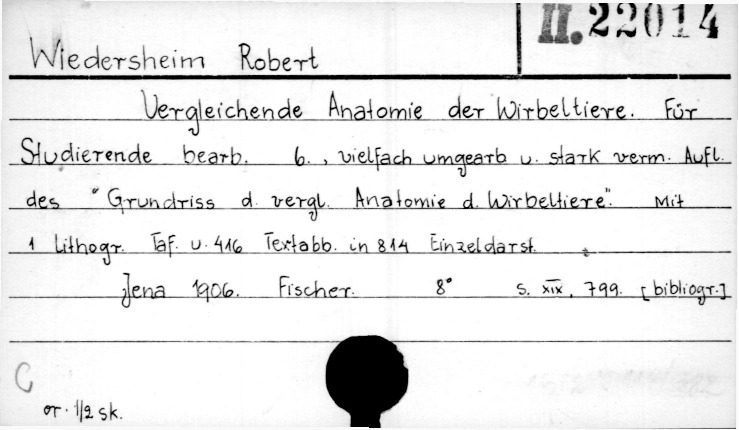 II. 22014
Wiedersheim Robert
Vergleichende Anatomie der Wirbeltiere. Für
Studierende bearb. 6., vielfach umgearb u. stark verm. Aufl.
des "Grundriss d. vergl. Anatomie d. Wirbeltiere". Mit
1 Lithogr. Taf. u. 416 Textabb. in 814 Einzeldarst.
Jena 1906. Fischer. 8° S. XIX, 799. [bibliogr.]
C
or. 1/2 sk.